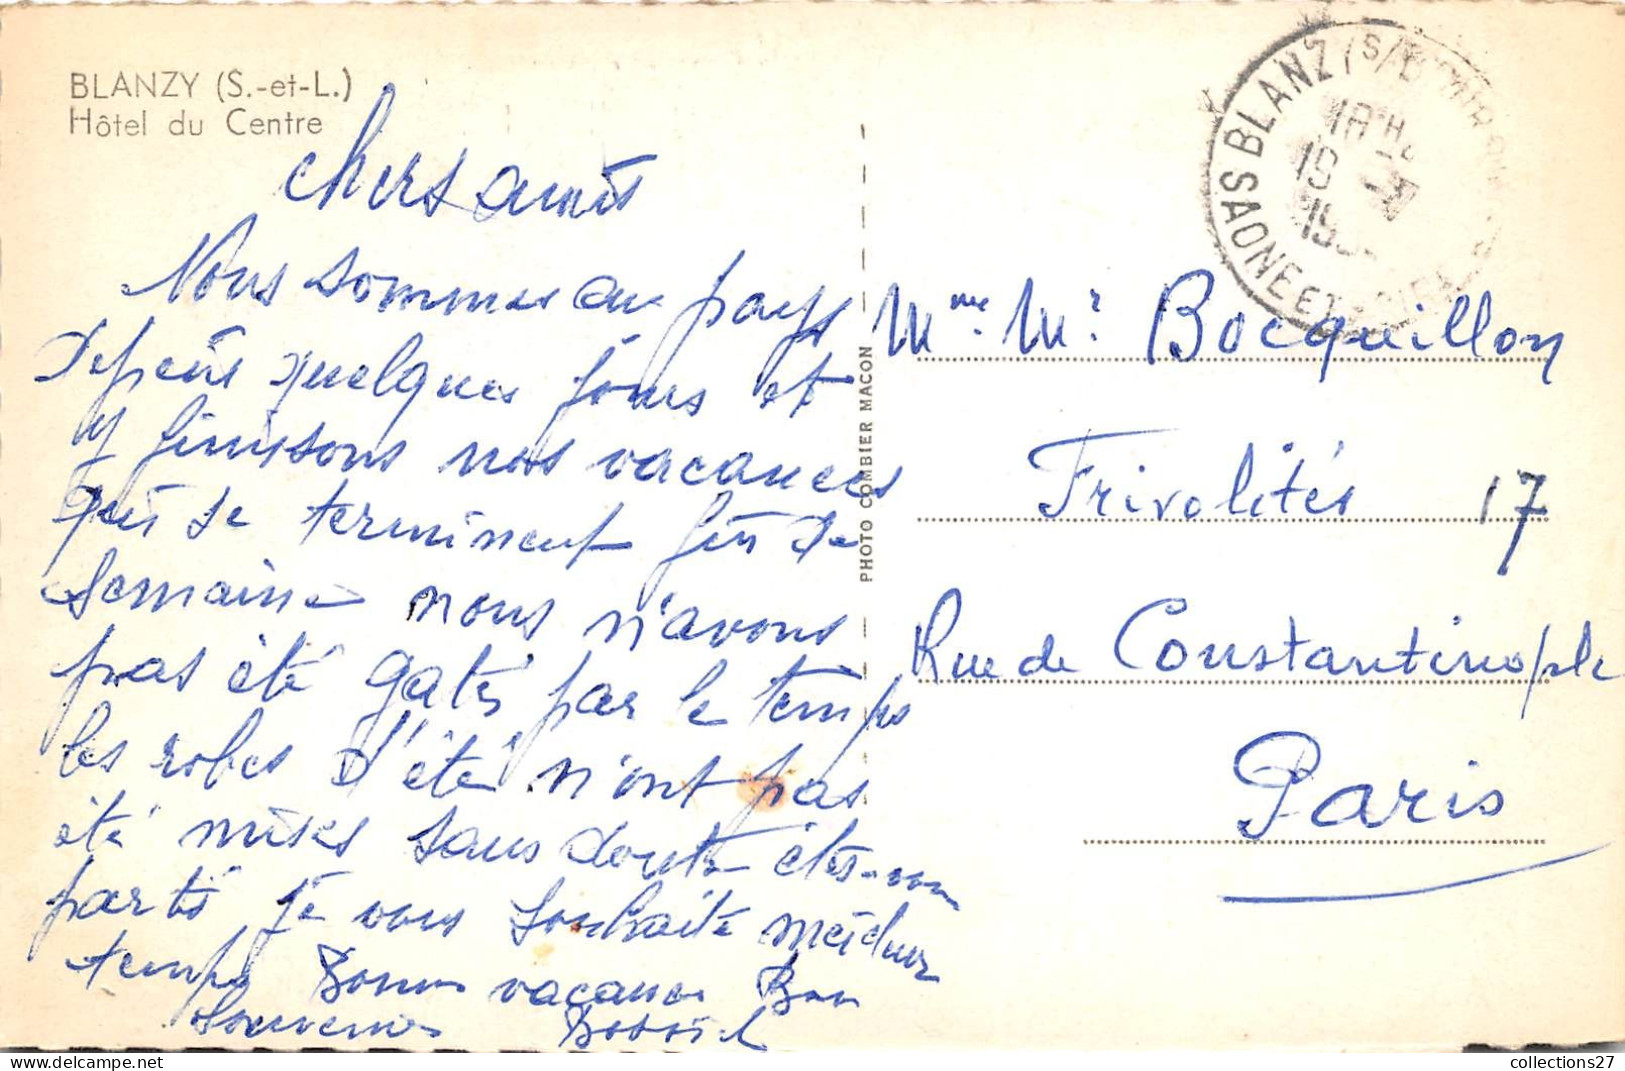 BLANZY (S.-et-L.)
Hôtel du Centre
chers amis
Nous sommes au pays
depuis quelques jours et
y finissons nos vacances
qui se terminent fin de
semaine nous n'avons
pas été gatés par le temps
les robes d'été n'ont pas
été mises sans doute êtes-vous
partis je vous souhaite meilleur
temps Bonnes vacances Bon
souvenir
PHOTO COMBIER MACON
BLANZY
SAONE ET
18H
19
Mme Mr Bocquillon
Frivolités 17
Rue de Constantinople
Paris
collections27